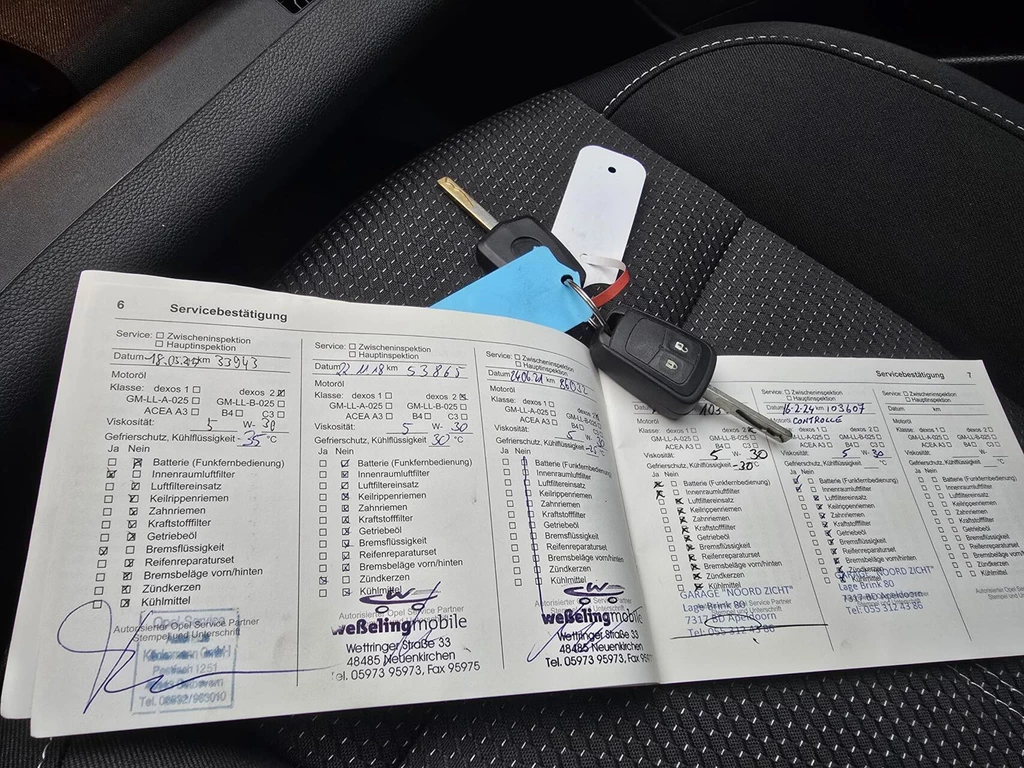 6 Servicebestätigung
Service: Zwischeninspektion
Hauptinspektion
Datum km 33943
Motoröl
Klasse: dexos 1 dexos 2
GM-LL-A-025 GM-LL-B-025
ACEA A3 B4 C3
Viskosität: 5 W- 30
Gefrierschutz, Kühlflüssigkeit - 35 °C
Ja Nein
Batterie (Funkfernbedienung)
Innenraumluftfilter
Luftfiltereinsatz
Keilrippenriemen
Zahnriemen
Kraftstofffilter
Getriebeöl
Bremsflüssigkeit
Reifenreparaturset
Bremsbeläge vorn/hinten
Zündkerzen
Kühlmittel
Autorisierter Opel Service Partner
Stempel und Unterschrift
Opel Service
GmbH
Postfach 1251
Service: Zwischeninspektion
Hauptinspektion
Datum km 53865
Motoröl
Klasse: dexos 1 dexos 2
GM-LL-A-025 GM-LL-B-025
ACEA A3 B4 C3
Viskosität: 5 W- 30
Gefrierschutz, Kühlflüssigkeit 30 °C
Ja Nein
Batterie (Funkfernbedienung)
Innenraumluftfilter
Luftfiltereinsatz
Keilrippenriemen
Zahnriemen
Kraftstofffilter
Getriebeöl
Bremsflüssigkeit
Reifenreparaturset
Bremsbeläge vorn/hinten
Zündkerzen
Kühlmittel
Autorisierter Opel Service Partner
weßelingmobile
Wettringer Straße 33
48485 Neuenkirchen
Tel. 05973 95973, Fax 95975
Service: Zwischeninspektion
Hauptinspektion
Datum km
Motoröl
Klasse: dexos 1 dexos 2
GM-LL-A-025 GM-LL-B-025
ACEA A3 B4 C3
Viskosität: 5 W- 30
Gefrierschutz, Kühlflüssigkeit °C
Ja Nein
Batterie (Funkfernbedienung)
Innenraumluftfilter
Luftfiltereinsatz
Keilrippenriemen
Zahnriemen
Kraftstofffilter
Getriebeöl
Bremsflüssigkeit
Reifenreparaturset
Bremsbeläge vorn/hinten
Zündkerzen
Kühlmittel
weßelingmobile
Wettringer Straße 33
48485 Neuenkirchen
Tel. 05973 95973, Fax 95975
Servicebestätigung 7
Klasse: dexos 1 dexos 2
GM-LL-A-025 GM-LL-B-025
ACEA A3 B4 C3
Viskosität: 5 W- 30
Gefrierschutz, Kühlflüssigkeit -30 °C
Ja Nein
Batterie (Funkfernbedienung)
Innenraumluftfilter
Luftfiltereinsatz
Keilrippenriemen
Zahnriemen
Kraftstofffilter
Getriebeöl
Bremsflüssigkeit
Reifenreparaturset
Bremsbeläge vorn/hinten
Zündkerzen
Kühlmittel
GARAGE "NOORD ZICHT"
Lage Brink 80
7317 BD Apeldoorn
Tel: 055 312 43 86
Service: Zwischeninspektion
Hauptinspektion
Datum 16-2-24 km 103607
Motoröl CONTROLLE
Klasse: dexos 1 dexos 2
GM-LL-A-025 GM-LL-B-025
ACEA A3 B4 C3
Viskosität: 5 W- 30
Gefrierschutz, Kühlflüssigkeit °C
Ja Nein
Batterie (Funkfernbedienung)
Innenraumluftfilter
Luftfiltereinsatz
Keilrippenriemen
Zahnriemen
Kraftstofffilter
Getriebeöl
Bremsflüssigkeit
Reifenreparaturset
Bremsbeläge vorn/hinten
Zündkerzen
Kühlmittel
GARAGE "NOORD ZICHT"
Lage Brink 80
7317 BD Apeldoorn
Tel: 055 312 43 86
Service: Zwischeninspektion
Hauptinspektion
Datum km
Motoröl
Klasse: dexos 1 dexos 2
GM-LL-A-025 GM-LL-B-025
ACEA A3 B4 C3
Viskosität: W-
Gefrierschutz, Kühlflüssigkeit °C
Ja Nein
Batterie (Funkfernbedienung)
Innenraumluftfilter
Luftfiltereinsatz
Keilrippenriemen
Zahnriemen
Kraftstofffilter
Getriebeöl
Bremsflüssigkeit
Reifenreparaturset